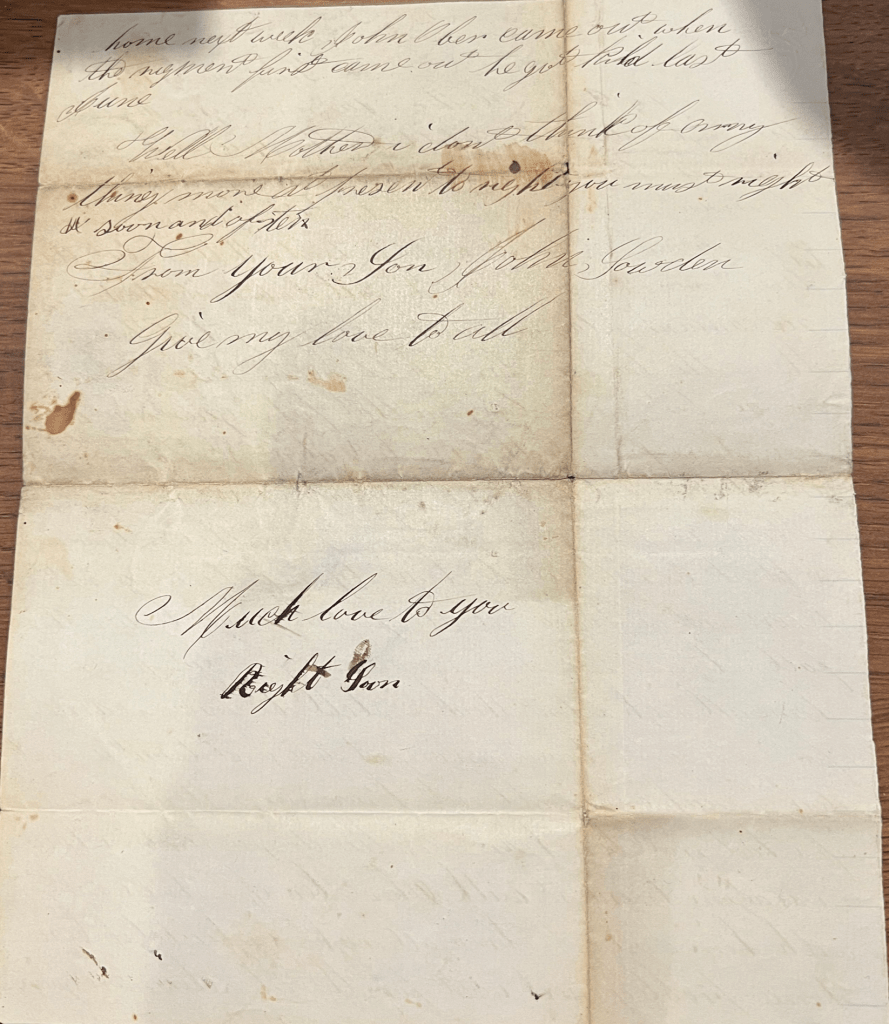 home next week John Ober came out when
the regment first came out he got kild last
June
Well Mother i dont think of enny
thing more at presen to night you must right
soon and often
From your Son John Sowden
Give my love to all
Much love to you
Right Soon